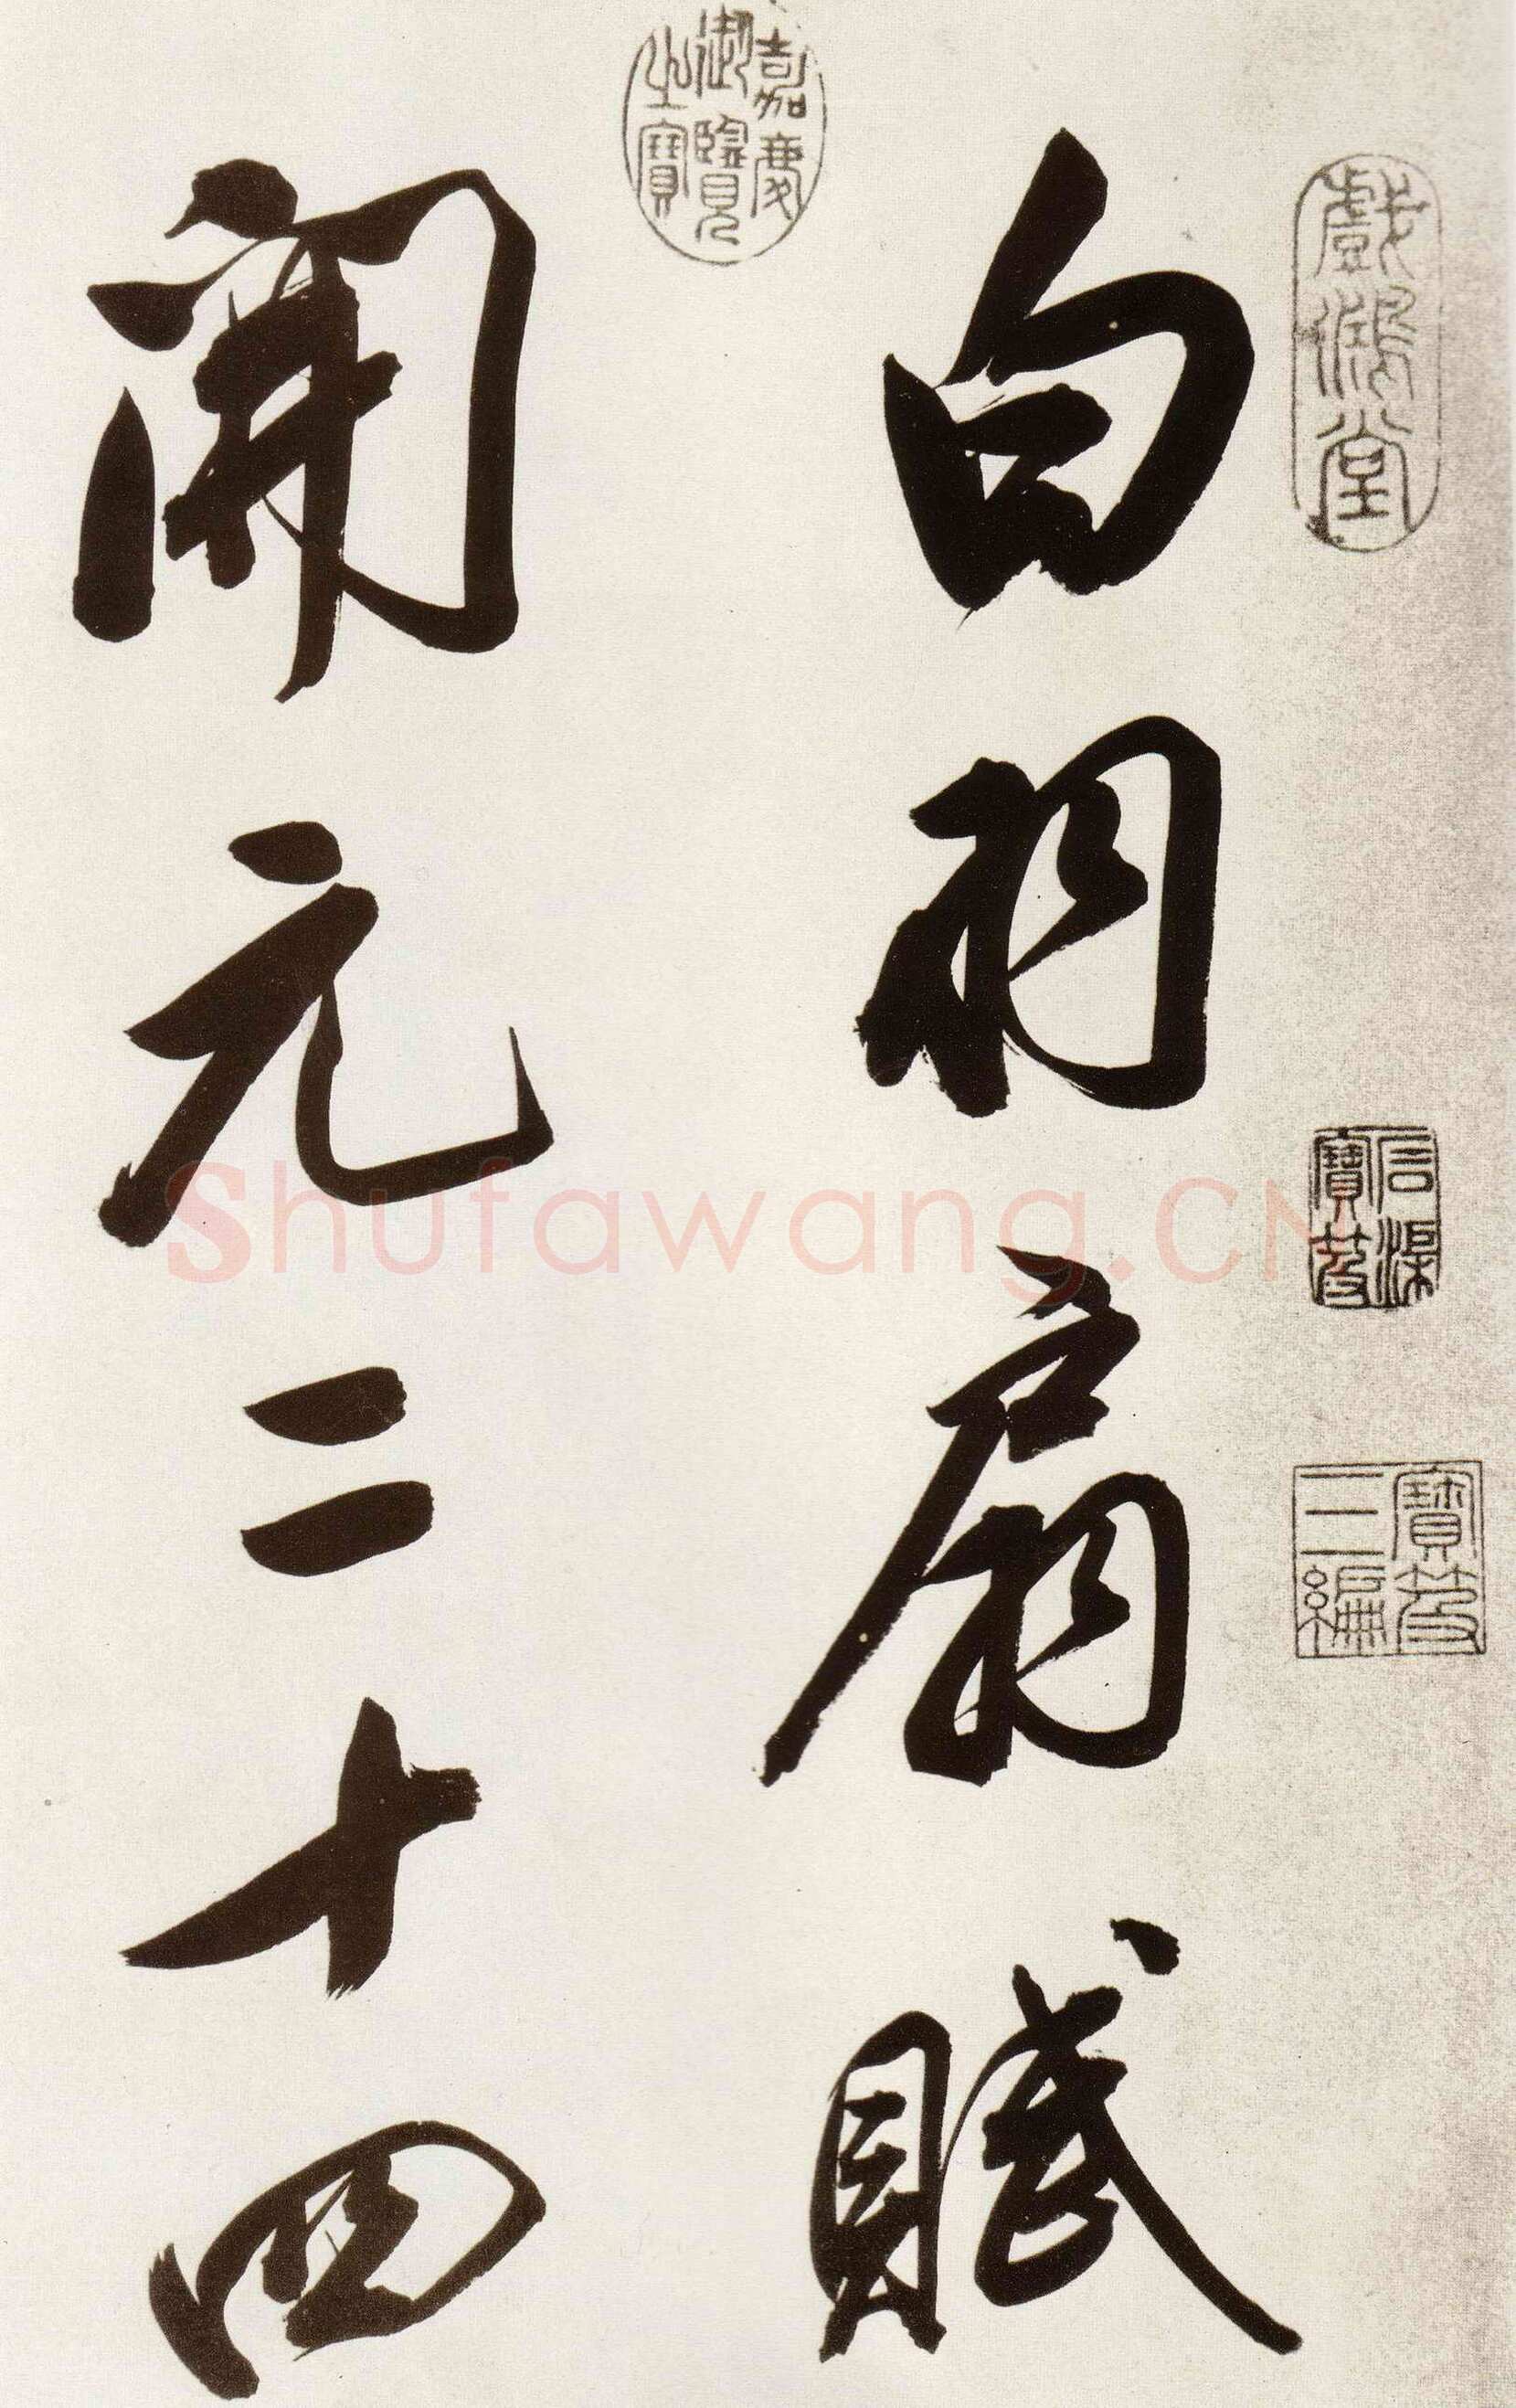 白羽扇賦
開元二十四
戲鴻堂
嘉慶御覽之寶
寶笈
寶笈三編
Shufawang.CN